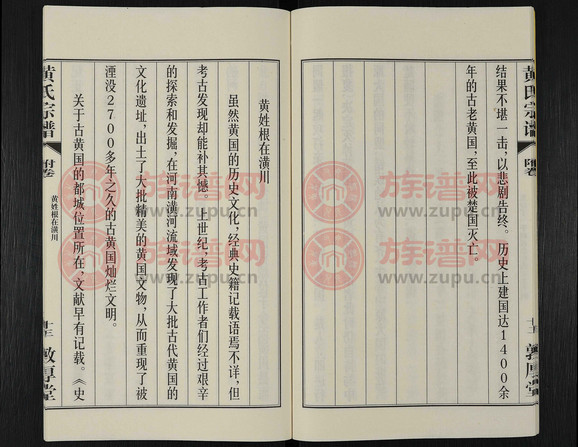 结果不堪一击，以悲剧告终。历史上建国达1400余
年的古老黄国，至此被楚国灭亡
黄姓根在潢川
虽然黄国的历史文化，经典史籍记载语焉不详，但
考古发现却能补其憾。上世纪，考古工作者们经过艰辛
的探索和发掘，在河南潢河流域发现了大批古代黄国的
文化遗址，出土了大批精美的黄国文物，从而重现了被
湮没2700多年之久的古黄国灿烂文明。
关于古黄国的都城位置所在，文献早有记载。《史
黄氏宗谱
附卷
黄姓根在潢川
敦厚堂
族谱网
www.zupu.cn
族谱网
www.zupu.cn
族谱网
www.zupu.cn
族谱网
www.zupu.cn